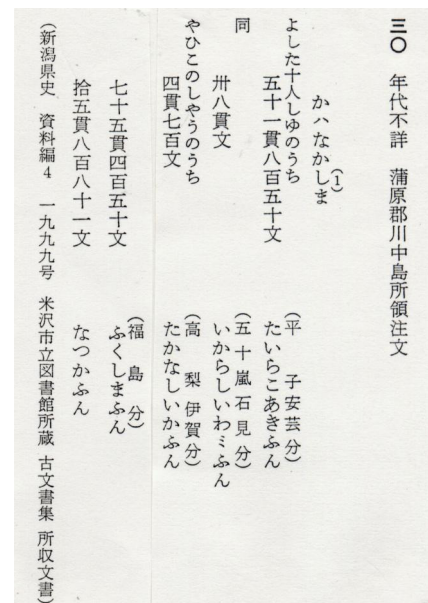 三〇　年代不詳　蒲原郡川中島所領注文
(1)
かハなかしま
よした十人しゆのうち
五十一貫八百五十文　(平　子安芸分)たいらこあきふん
同
卅八貫文　(五十嵐石見分)いからしいわミふん
やひこのしやうのうち
四貫七百文　(高梨伊賀分)たかなしいかふん
七十五貫四百五十文　(福島分)ふくしまふん
拾五貫八百八十一文　なつかふん
(新潟県史　資料編4　一九九九号　米沢市立図書館所蔵　古文書集　所収文書)